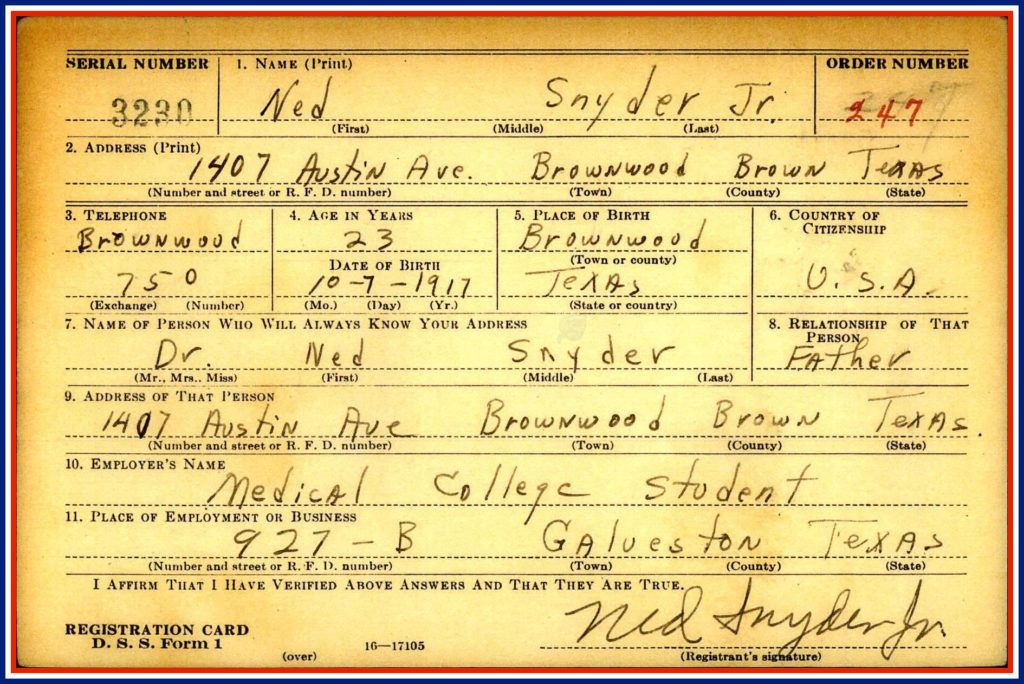 SERIAL NUMBER 1. NAME (Print) ORDER NUMBER
3230 Ned Snyder Jr. 247
(First) (Middle) (Last)
2. ADDRESS (Print)
1407 Austin Ave. Brownwood Brown Texas
(Number and street or R. F. D. number) (Town) (County) (State)
3. TELEPHONE 4. AGE IN YEARS 5. PLACE OF BIRTH 6. COUNTRY OF CITIZENSHIP
Brownwood 23 Brownwood
DATE OF BIRTH (Town or county)
750 10-7-1917 Texas U.S.A.
(Exchange) (Number) (Mo.) (Day) (Yr.) (State or country)
7. NAME OF PERSON WHO WILL ALWAYS KNOW YOUR ADDRESS 8. RELATIONSHIP OF THAT PERSON
Dr. Ned Snyder Father
(Mr., Mrs.. Miss) (First) (Middle) (Last)
9. ADDRESS OF THAT PERSON
1407 Austin Ave Brownwood Brown Texas.
(Number and street or R. F. D. number) (Town) (County) (State)
10. EMPLOYER'S NAME
Medical College Student
11. PLACE OF EMPLOYMENT OR BUSINESS
927-B Galveston Texas
(Number and street or R. F. D. number) (Town) (County) (State)
I AFFIRM THAT I HAVE VERIFIED ABOVE ANSWERS AND THAT THEY ARE TRUE.
Ned Snyder Jr.
REGISTRATION CARD
D. S. S. Form 1 (over) 16—17105 (Registrant's signature)